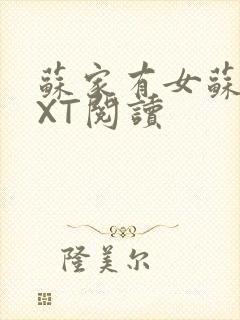 蘇家有女蘇
XT閱讀
隆美尔